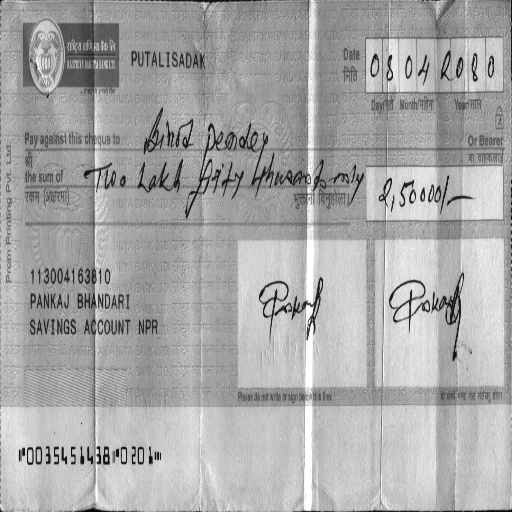 राष्ट्रिय वाणिज्य बैंक लि
RASTRIYA BANIJYA BANK LTD.
PUTALISADAK
Date
मिति
08042080
Day/गते Month/महिना Year/साल
Pay against this cheque to
Binod Pandey
Or Bearer
श्री
वा वाहकलाई
the sum of
Two Lakh fifty thousands only
रकम (अक्षरमा)
भुक्तानी दिनुहोला।
2,50000/-
113004163810
PANKAJ BHANDARI
SAVINGS ACCOUNT NPR
Please do not write or sign below this line.
Prem Printing Pvt. Ltd.
⑈0035451438⑈0201⑈